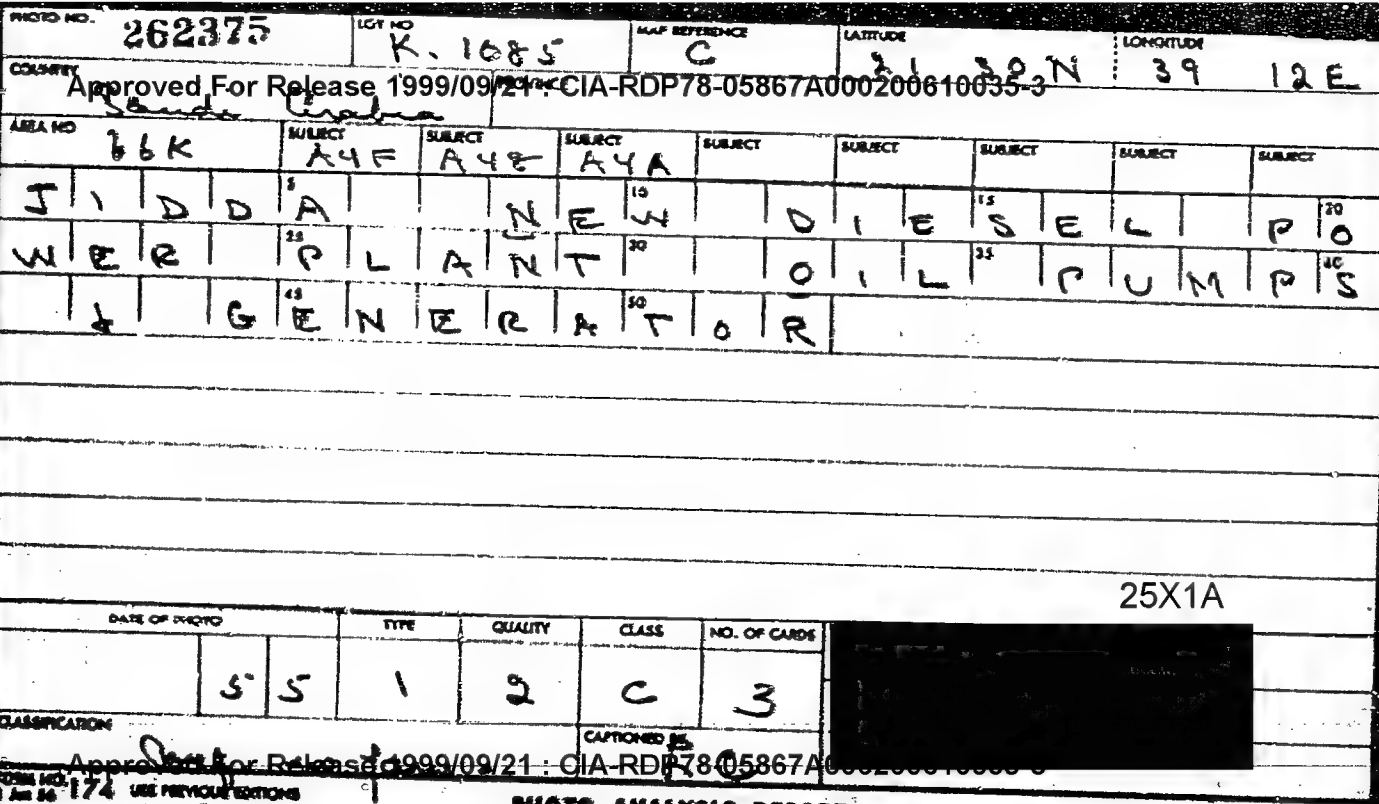 PHOTO NO. 262375 LGT NO K. 1685 MAP REFERENCE C LATITUDE 21 30 N LONGITUDE 39 12 E
COUNTRY Saudi Arabia PROVINCE
Approved For Release 1999/09/21 : CIA-RDP78-05867A000200610035-3
AREA NO 66K SUBJECT A4F SUBJECT A4E SUBJECT A4A SUBJECT SUBJECT SUBJECT SUBJECT SUBJECT
JIDDA NEW DIESEL PO
WER PLANT OIL PUMPS
& GENERATOR
5 10 15 20
25 30 35 40
45 50
25X1A
DATE OF PHOTO TYPE QUALITY CLASS NO. OF CARDS
55 1 2 C 3
CLASSIFICATION CAPTIONED BY
Approved For Release 1999/09/21 : CIA-RDP78-05867A000200610035-3
FORM NO. 174 USE PREVIOUS EDITIONS
1 Jun 56